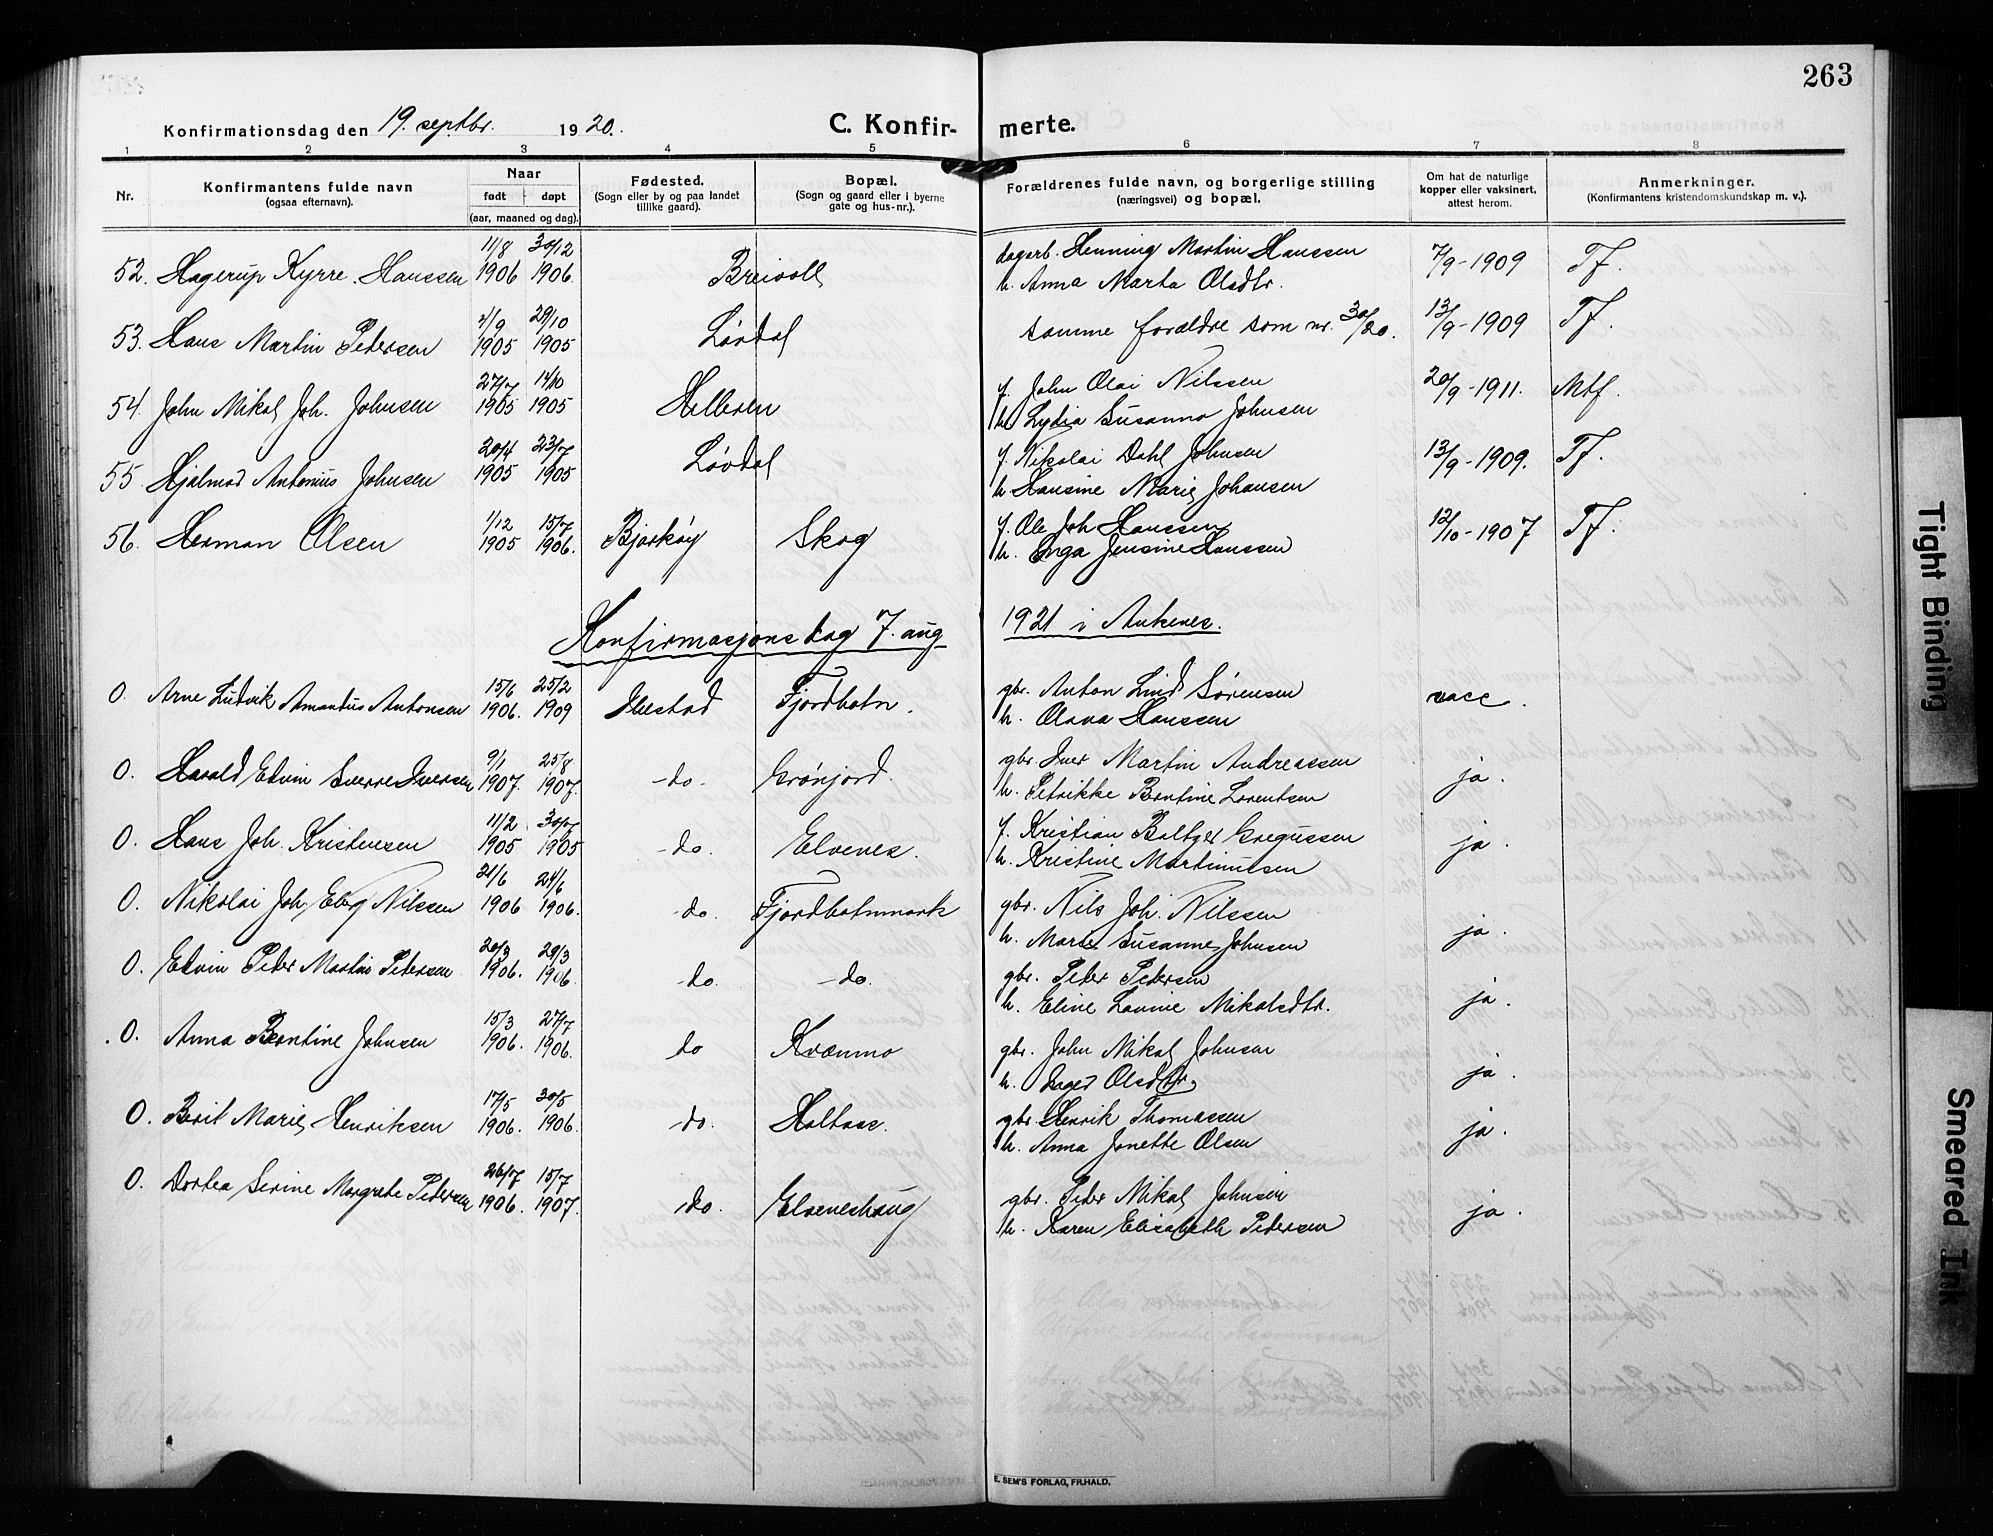 263
Konfirmationsdag den 19. septbr. 1920. C. Konfir- merte.
1 2 3 4 5 6 7 8
Nr. Konfirmantens fulde navn (ogsaa efternavn). Naar født døpt (aar, maaned og dag). Fødested. (Sogn eller by og paa landet tillike gaard). Bopæl. (Sogn og gaard eller i byerne gate og hus-nr.). Forældrenes fulde navn, og borgerlige stilling (næringsvei) og bopæl. Om hat de naturlige kopper eller vaksinert, attest herom. Anmerkninger. (Konfirmantens kristendomskundskap m. v.).
11/8 30/12 dagarb. Henning Martin Hanssen
52. Hagerup Kyrre Hanssen 1906 1906. Breivoll h. Anna Marta Olsdtr. 7/9-1909 Tf.
2/9 29/10
53. Hans Martin Petersen 1905 1905 Løvdal samme forældre som nr. 30/20. 13/9-1909 Tf.
27/7 14/10 f. John Olai Nilssen
54. John Mikal Joh. Johnsen 1905 1905 Helleren h. Lydia Susanna Johnsen 20/9-1911. Mtf.
20/4 23/7 f. Nikolai Dahl Johnsen
55. Hjalmar Antonius Johnsen 1905 1905 Løvdal h. Hansine Marie Johansen 13/9-1909. Tf.
1/12 15/7 f. Ole Joh. Hanssen
56. Herman Olsen 1905 1906. Bjarkøy Skog h. Inga Jensine Hanssen 12/10-1907 Tf.
Konfirmasjonsdag 7. aug 1921 i Ankenes.
15/6 25/2 gbr. Anton Lind Sørensen
0. Arne Ludvik Amandus Antonsen 1906. 1909 Ibestad Fjordbotn. h. Olava Hanssen vacc.
9/1 25/8 gbr. Iver Martin Andreassen
0. Harald Edvin Sverre Iversen 1907. 1907. -do- Grønjord. h. Petrikke Bentine Lorentsen ja.
11/2 30/7 f. Kristian Baltzer Gregussen
0. Hans Joh. Kristensen 1905 1905 -do. Elvenes. h. Kristine Martinussen ja.
21/6 24/6 gbr. Nils Joh. Nilssen
0. Nikolai Joh. Eberg Nilssen 1906 1906. -do. Fjordbotnmark h. Marie Susanne Johnsen ja.
20/3 29/3 gbr. Peter Petersen
0. Edvin Peder Martin Petersen 1906. 1906. -do. -do. h. Eline Lovise Mikalsdtr. ja.
15/3 27/7 gbr. John Mikal Johnsen
0. Anna Bentine Johnsen 1906. 1906. do Kvænmo h. Inger Olsdtr. ja.
17/5 30/5 gbr. Henrik Thomassen
0. Berit Marie Henriksen 1906. 1906. -do. Holtaas. h. Anna Jonette Olsen ja.
26/7 15/7 gbr. Peder Mikal Johnsen
0. Dortea Serine Margrete Pedersen 1906. 1907. -do. Elveneshaug h. Karen Elisabeth Pedersen ja.
E. SEM'S FORLAG, FR.HALD.
Tight Binding
Smeared Ink